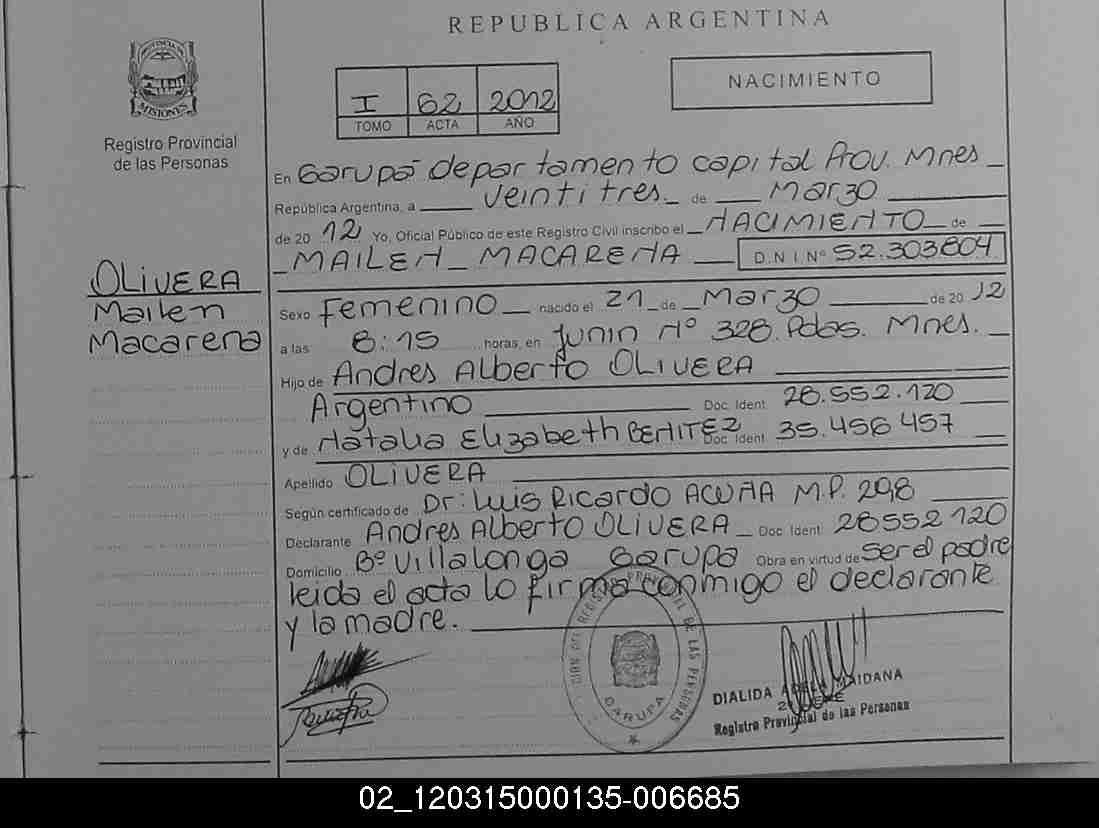 REPUBLICA ARGENTINA
PROVINCIA DE
MISIONES
Registro Provincial
de las Personas
I 62 2012
TOMO ACTA AÑO
NACIMIENTO
En Garupá departamento capital Prov. Mnes
República Argentina, a veintitres de Marzo
de 2012 Yo, Oficial Público de este Registro Civil inscribo el NACIMIENTO de
MAILEN MACARENA D.N.I. Nº 52.303804
OLIVERA
Mailen
Macarena
Sexo Femenino nacido el 21 de Marzo de 2012
a las 8:15 horas, en Junin Nº 328. Pdas. Mnes.
Hijo de Andres Alberto OLIVERA
Argentino Doc. Ident 28.552.120
y de Natalia Elizabeth BENITEZ Doc Ident 35.456 457
Apellido OLIVERA
Según certificado de Dr: Luis Ricardo ACUÑA M.P. 208
Declarante Andres Alberto OLIVERA Doc Ident 28552120
Domicilio Bº Villalonga Garupa Obra en virtud de ser el padre
leida el acta lo firma conmigo el declarante
y la madre.
REGISTRO PROVINCIAL DE LAS PERSONAS
GARUPA
DIALIDA MAIDANA
Registro Provincial de las Personas
02_120315000135-006685